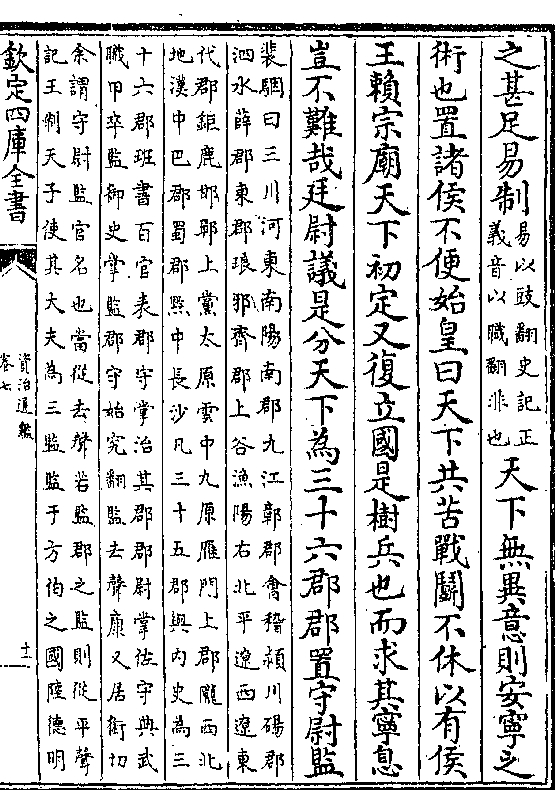 之甚足易制易以豉翻史記正義音以職翻非也天下無異意則安寧之
術也置諸侯不便始皇曰天下共苦戰鬭不休以有侯
王賴宗廟天下初定又復立國是樹兵也而求其寧息
豈不難哉廷尉議是分天下為三十六郡郡置守尉監
裴駰曰三川河東南陽南郡九江鄣郡會稽潁川碭郡
泗水薛郡東郡琅邪齊郡上谷漁陽右北平遼西遼東
代郡鉅鹿邯鄲上黨太原雲中九原雁門上郡隴西北
地漢中巴郡蜀郡黔中長沙凡三十五郡與内史為三
十六郡班書百官表郡守掌治其郡郡尉掌佐守典武
職甲卒監御史掌監郡守始究翻監去聲康又居銜切
余謂守尉監官名也當從去聲若監郡之監則從平聲
記王制天子使其大夫為三監監于方伯之國陸德明
欽定四庫全書
資治通鑑
卷七
十一